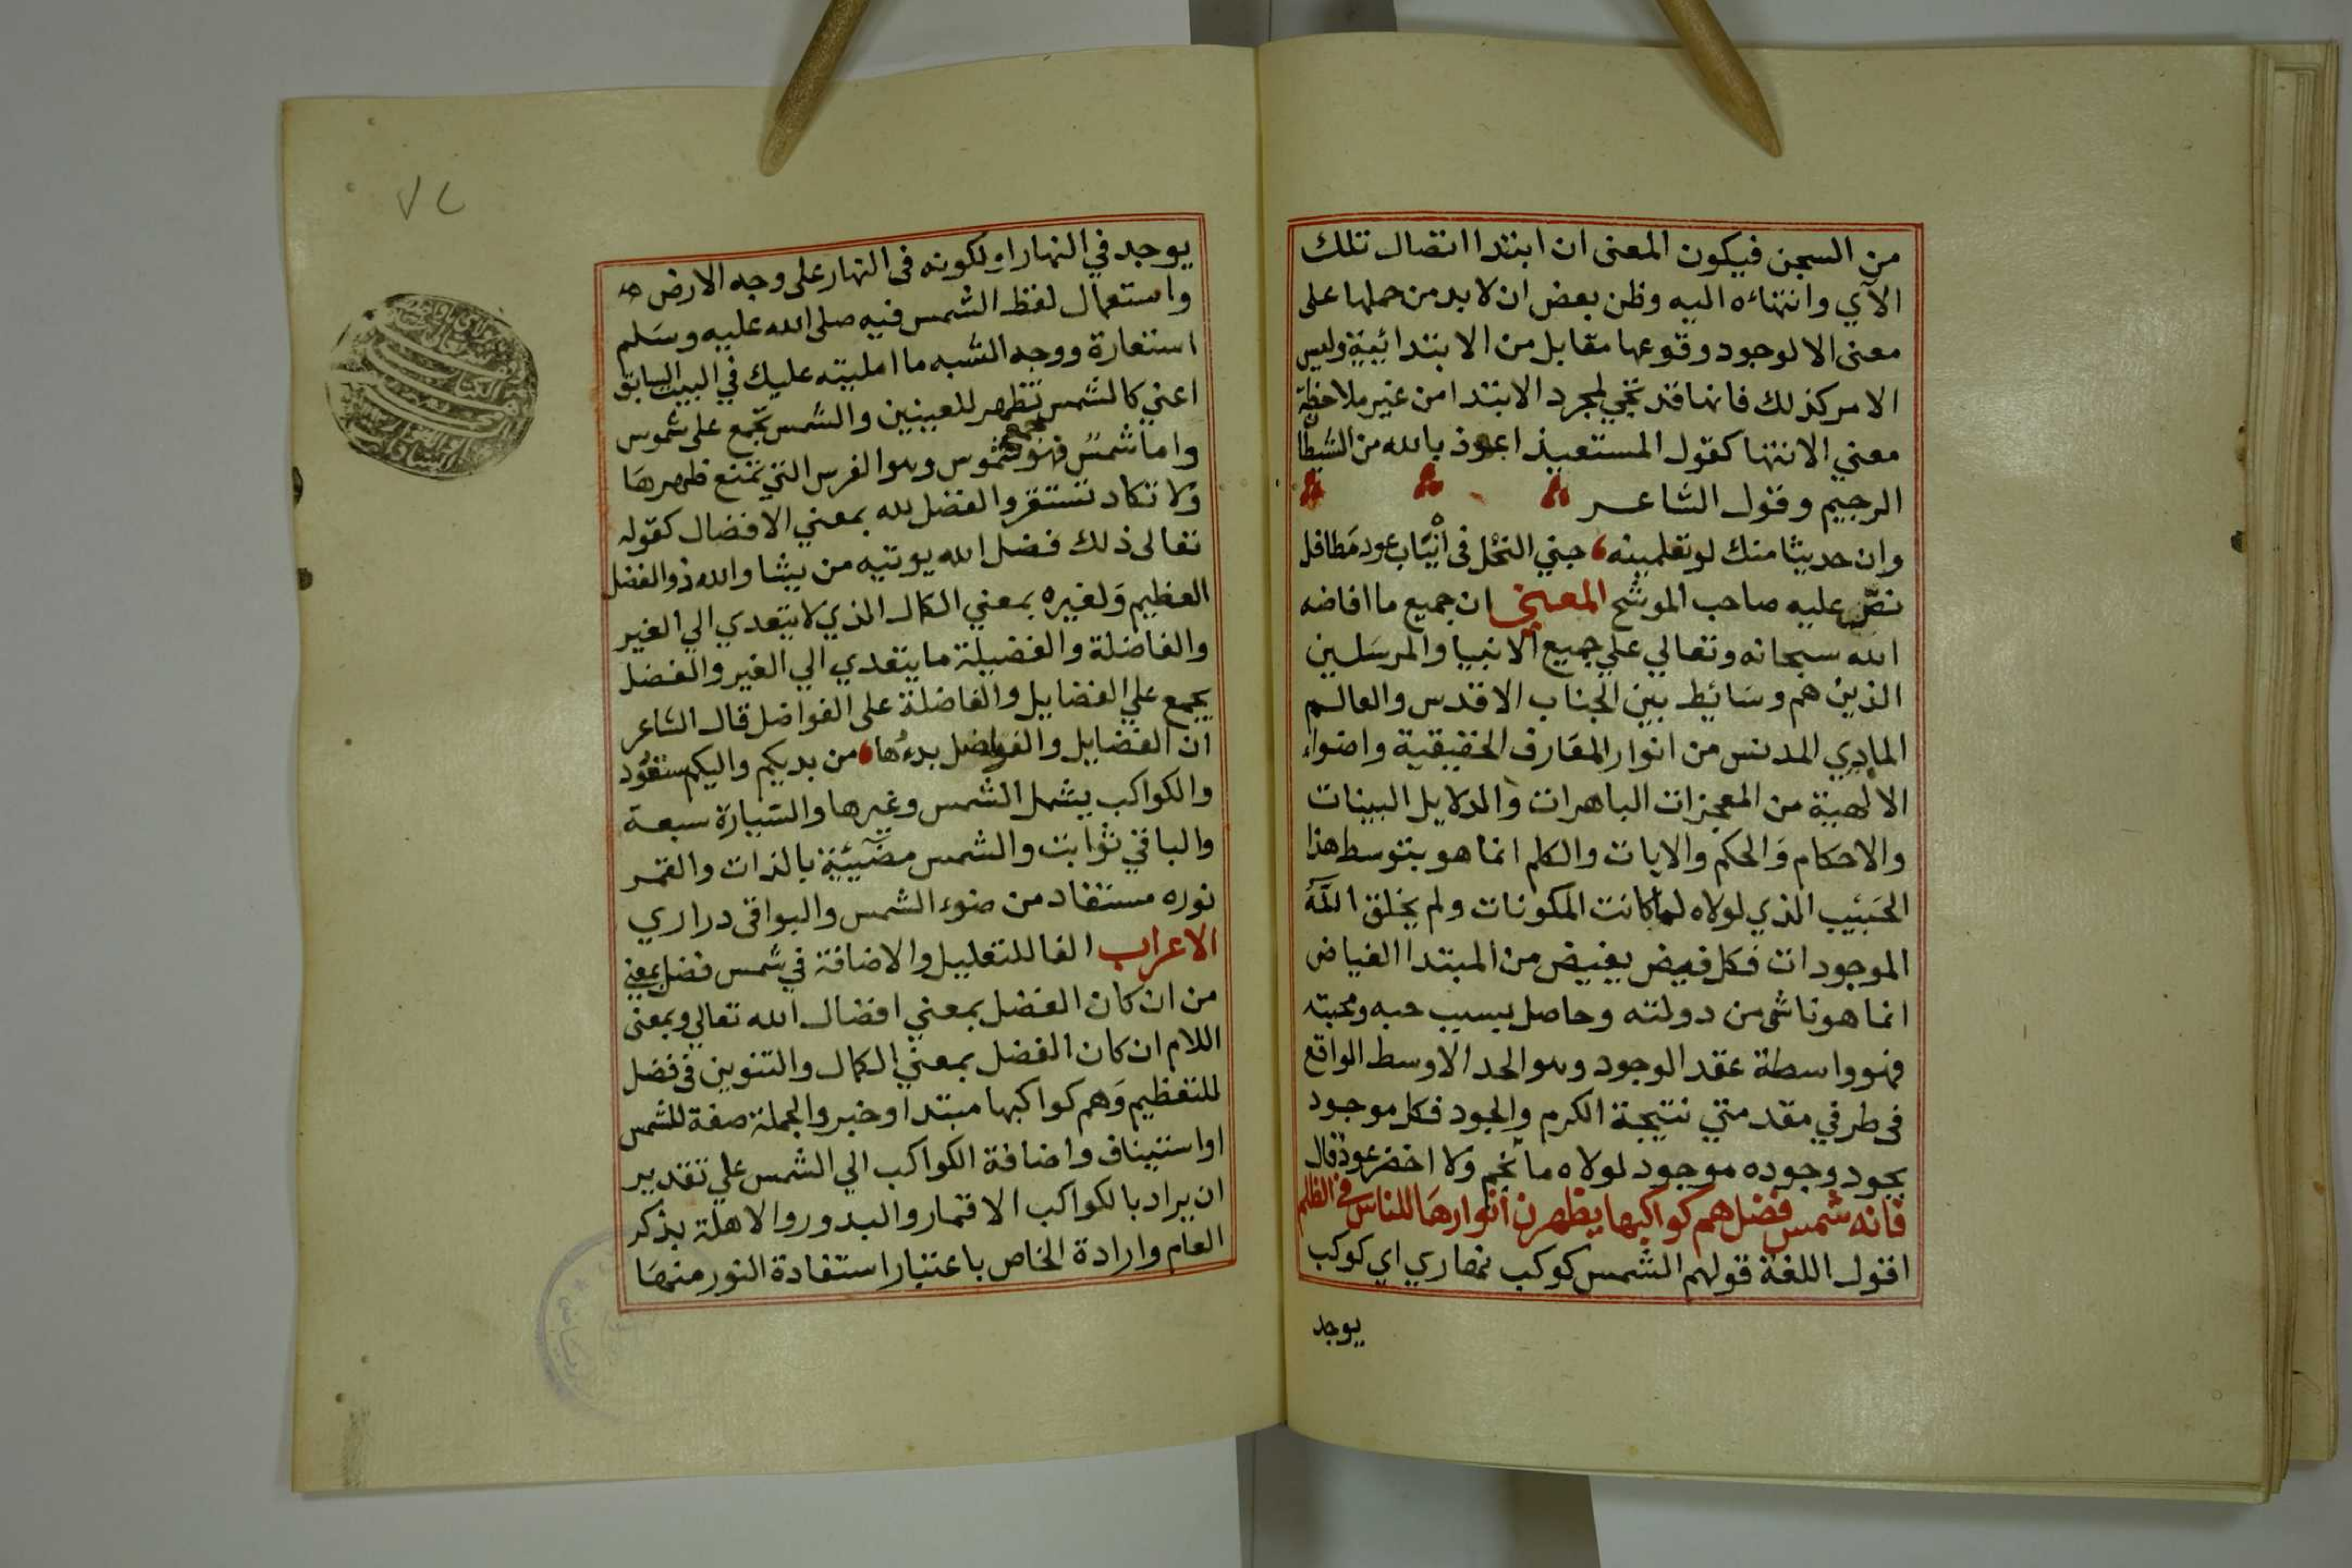 من السجن فيكون المعنى ان ابتدا اتصال تلك
الآي وانتهاءه اليه وظن بعض ان لا بد من حملها على
معنى الا لوجود وقوعها مقابل من الابتدائية وليس
الامر كذلك فانها قد تجي لمجرد الابتدا من غير ملاحظة
معني الانتها كقول المستعيذ اعوذ بالله من الشيطا
الرجيم وقول الشاعر
وان حديثا منك لو تعلمينه جني النحل في انياب عود مطافل
نص عليه صاحب الموشح المعني ان جميع ما افاضه
الله سبحانه وتعالي علي جميع الانبيا والمرسلين
الذين هم وسائط بين الجناب الاقدس والعالم
المادي المدنس من انوار المعارف الحقيقية واضواء
الالهية من المعجزات الباهرات والدلايل البينات
والاحكام والحكم والايات والكلم انما هو بتوسط هذا
الحبيب الذي لولاه لما كانت المكونات ولم يخلق الله
الموجودات فكل فيض يفيض من المبتدا الفياض
انما هو ناشى من دولته وحاصل بسبب حبه ومحبته
فهو واسطة عقد الوجود وهو الحد الاوسط الواقع
في طرفي مقدمتي نتيجة الكرم والجود فكل موجود
بجود وجوده موجود لولاه ما نجم ولا اخضر عود قال
فانه شمس فضل هم كواكبها يظهرن انوارها للناس في الظلم
اقول اللغة قولهم الشمس كوكب نهاري اي كوكب
يوجد
٧٢
يوجد في النهار او لكونه في النهار على وجه الارض
واستعمال لفظ الشمس فيه صلى الله عليه وسلم
استعارة ووجه الشبه ما امليته عليك في البيت السابق
اعني كالشمس تظهر للعينين والشمس تجمع على شموس
واما شمس فهو جمع شموس وهو الفرس التي تمنع ظهرها
ولا تكاد تستقر والفضل لله بمعني الافضال كقوله
تعالى ذلك فضل الله يوتيه من يشا والله ذو الفضل
العظيم ولغيره بمعني الكمال الذي لا يتعدي الي الغير
والفاضلة والفضيلة ما يتعدي الي الغير والفضل
يجمع علي الفضايل والفاضلة على الفواضل قال الشاعر
ان الفضايل والفواضل بدءها من بديكم واليكم ستعود
والكواكب يشمل الشمس وغيرها والسيارة سبعة
والباقي ثوابت والشمس مضيئة بالذات والقمر
نوره مستفاد من ضوء الشمس والبواقى دراري
الاعراب الفا للتعليل والاضافة في شمس فضل بمعني
من ان كان الفضل بمعني افضال الله تعالي وبمعنى
اللام ان كان الفضل بمعني الكمال والتنوين في فضل
للتعظيم وهم كواكبها مبتدا وخبر والجملة صفة للشمس
او استيناف واضافة الكواكب الي الشمس علي تقدير
ان يراد بالكواكب الاقمار والبدور والاهلة بذكر
العام وارادة الخاص باعتبار استفادة النور منها